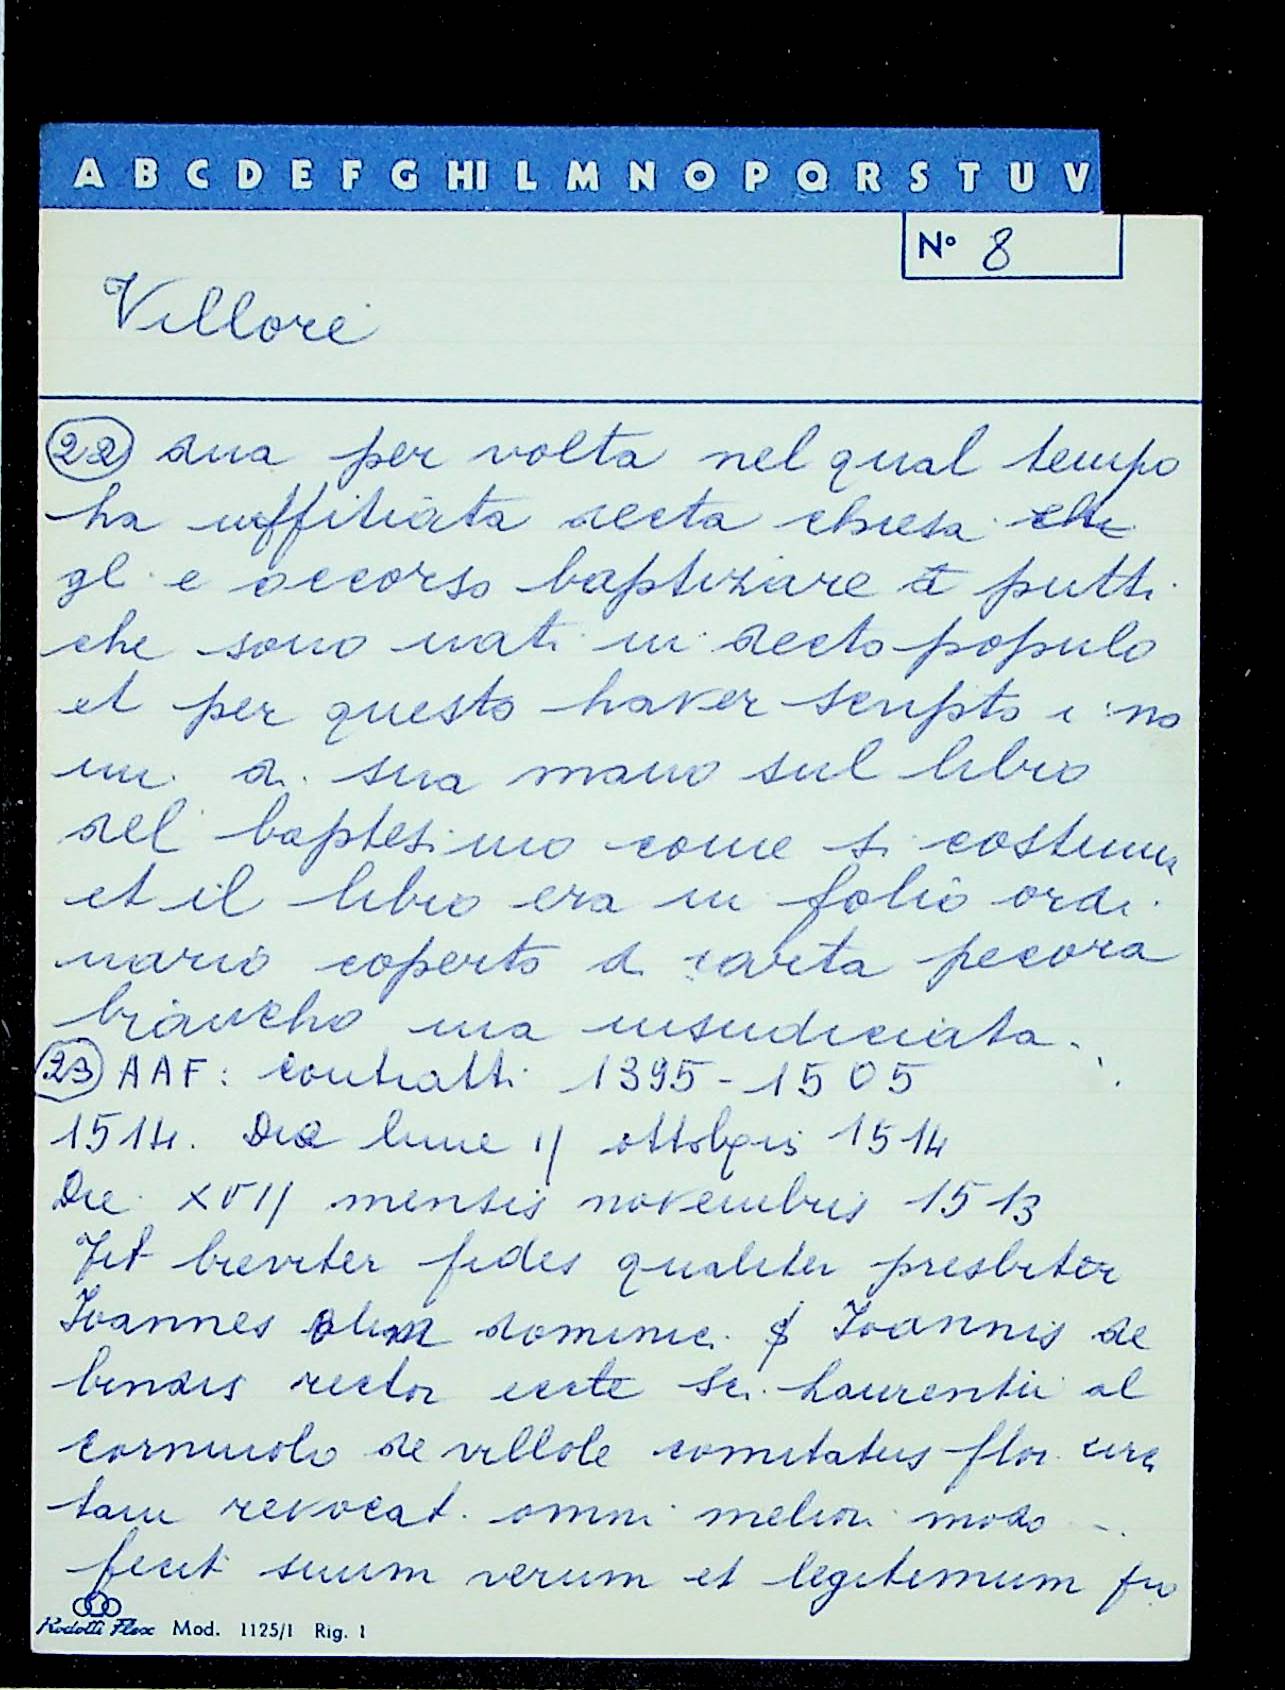 A B C D E F G HI L M N O P Q R S T U V
N° 8
Villore
22 dua per volta nel qual tempo
ha uffitiata decta chiesa che
gl e occorso baptiziare putti
che sono nati in decto popolo
et per questo haver scripto i no
mi di sua mano sul libro
del baptesimo come si costuma
et il libro era in folio ordi
nario coperto di carta pecora
biancho ma insudiciata.
23 AAF: contratti 1395-1505
1514. Die lune ij ottobris 1514
Die XVII mensis novembris 1513
Fit breviter fides qualiter presbiter
Ioannes olim dominic. Ioannis de
bindis rector Sci. Laurentii al
cornuolo de villole comitatus flor.
tam revocat. omni meliori modo -.
fecit suum verum et legitimum
Rodotti Flex Mod. 1125/1 Rig. 1